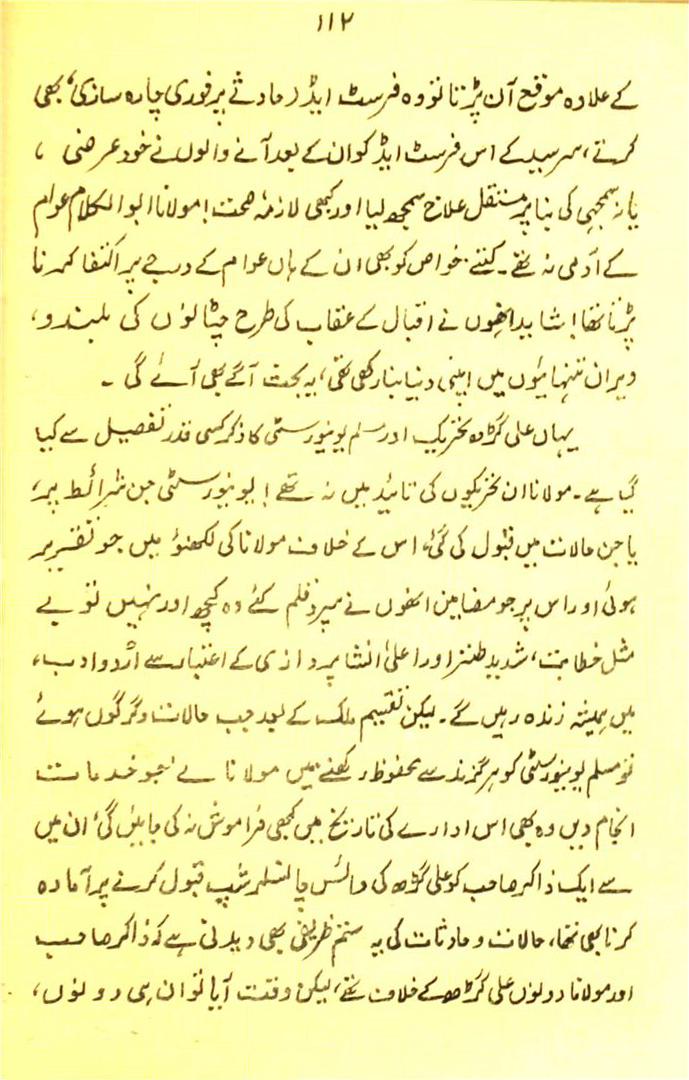 ۱۱۲
کے علاوہ موقع آن پڑتا تو وہ فرسٹ ایڈ (حادثے پر فوری چارہ سازی) بھی
کرتے، سرسید کے اس فرسٹ ایڈ کو ان کے بعد آنے والوں نے خود غرضی ،
یا نہ سمجھی کی بنا پر مستقل علاج سمجھ لیا اور کبھی لازمۂ صحت! مولانا ابوالکلام عوام
کے آدمی نہ تھے۔ کتنے خواص کو بھی ان کے ہاں عوام کے درجے پر اکتفا کرنا
پڑتا تھا! شاید انھوں نے اقبال کے عقاب کی طرح چٹانوں کی بلند و،
ویران تنہائیوں میں اپنی دنیا بنا رکھی تھی، یہ بحث آگے بھی آئے گی ۔
یہاں علی گڑھ تحریک اور مسلم یونیورسٹی کا ذکر کسی قدر تفصیل سے کیا
گیا ہے۔ مولانا ان تحریکوں کی تائید میں نہ تھے! یونیورسٹی جن شرائط پر،
یا جن حالات میں قبول کی گئی، اس کے خلاف مولانا کی لکھنؤ میں جو تقریر
ہوئی اور اس پر جو مضامین انھوں نے سپرد قلم کئے وہ کچھ اور نہیں تو بے
مثل خطابت، شدید طنز اور اعلیٰ انشا پردازی کے اعتبار سے اُردو ادب،
میں ہمیشہ زندہ رہیں گے۔ لیکن تقسیم ملک کے بعد جب حالات دگرگوں ہوئے
تو مسلم یونیورسٹی کو ہر گزند سے محفوظ رکھنے میں مولانا نے جو خدمات
انجام دیں وہ بھی اس ادارے کی تاریخ میں کبھی فراموش نہ کی جائیں گی، ان میں
سے ایک ذاکر صاحب کو علی گڑھ کی وائس چانسلر شپ قبول کرنے پر آمادہ
کرنا بھی تھا، حالات و حادثات کی یہ ستم ظریفی بھی دیدنی ہے کہ ذاکر صاحب
اور مولانا دونوں علی گڑھ کے خلاف تھے، لیکن وقت آیا تو ان ہی دونوں،